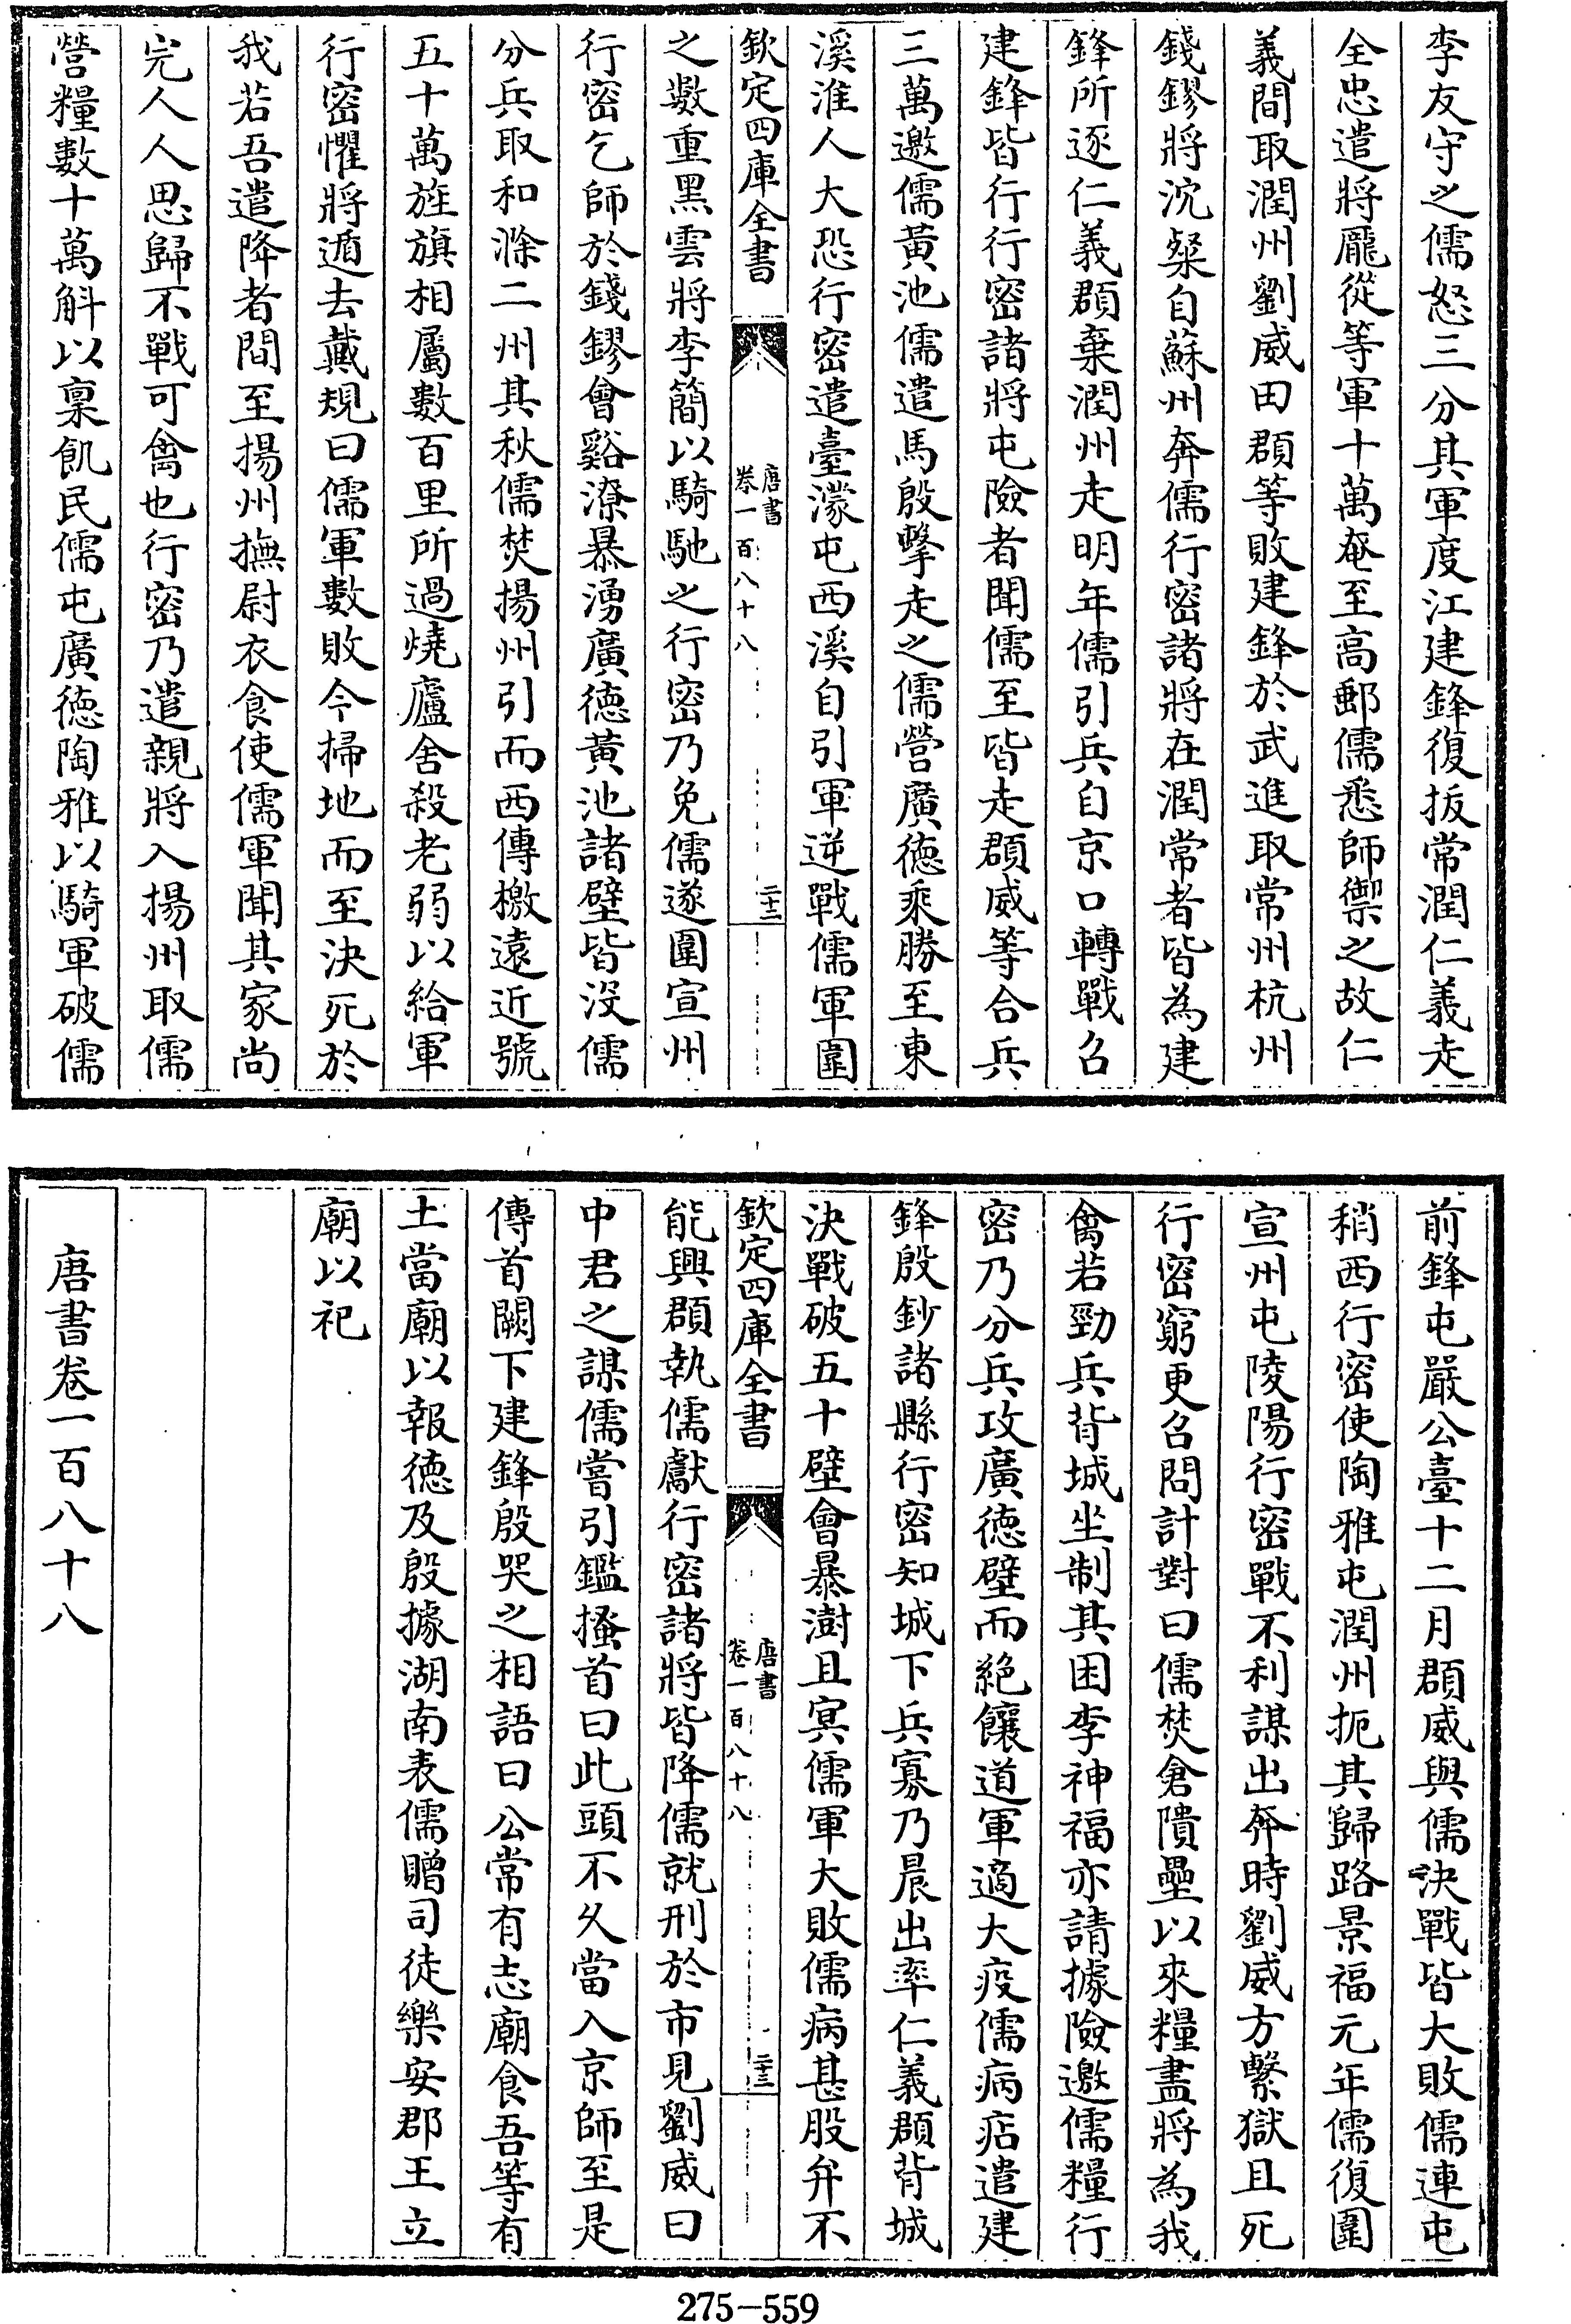 李友守之儒怒三分其軍度江建鋒復拔常潤仁義走
全忠遣將龐從等軍十萬奄至高郵儒悉師禦之故仁
義間取潤州劉威田頵等敗建鋒於武進取常州杭州
錢鏐將沈粲自蘇州奔儒行密諸將在潤常者皆為建
鋒所逐仁義頵棄潤州走明年儒引兵自京口轉戰召
建鋒皆行行密諸將屯險者聞儒至皆走頵威等合兵
三萬邀儒黃池儒遣馬殷擊走之儒營廣徳乘勝至東
溪淮人大恐行密遣臺濛屯西溪自引軍逆戰儒軍圍
欽定四庫全書
唐書
卷一百八十八
二十三
之數重黑雲將李簡以騎馳之行密乃免儒遂圍宣州
行密乞師於錢鏐會谿潦暴湧廣徳黃池諸壁皆沒儒
分兵取和滁二州其秋儒焚揚州引而西傳檄遠近號
五十萬旌旗相屬數百里所過燒廬舍殺老弱以給軍
行密懼將遁去戴規曰儒軍數敗今掃地而至決死於
我若吾遣降者間至揚州撫尉衣食使儒軍聞其家尚
完人人思歸不戰可禽也行密乃遣親將入揚州取儒
營糧數十萬斛以稟飢民儒屯廣徳陶雅以騎軍破儒
前鋒屯嚴公臺十二月頵威與儒決戰皆大敗儒連屯
稍西行密使陶雅屯潤州扼其歸路景福元年儒復圍
宣州屯陵陽行密戰不利謀出奔時劉威方繫獄且死
行密窮更召問計對曰儒焚倉隤壘以來糧盡將為我
禽若勁兵背城坐制其困李神福亦請據險邀儒糧行
密乃分兵攻廣徳壁而絕饟道軍適大疫儒病痁遣建
鋒殷鈔諸縣行密知城下兵寡乃晨出率仁義頵背城
決戰破五十壁會暴澍且冥儒軍大敗儒病甚股弁不
欽定四庫全書
唐書
卷一百八十八
二十三
能興頵執儒獻行密諸將皆降儒就刑於市見劉威曰
中君之謀儒嘗引鑑搔首曰此頭不久當入京師至是
傳首闕下建鋒殷哭之相語曰公常有志廟食吾等有
土當廟以報徳及殷據湖南表儒贈司徒樂安郡王立
廟以祀
唐書卷一百八十八
275-559